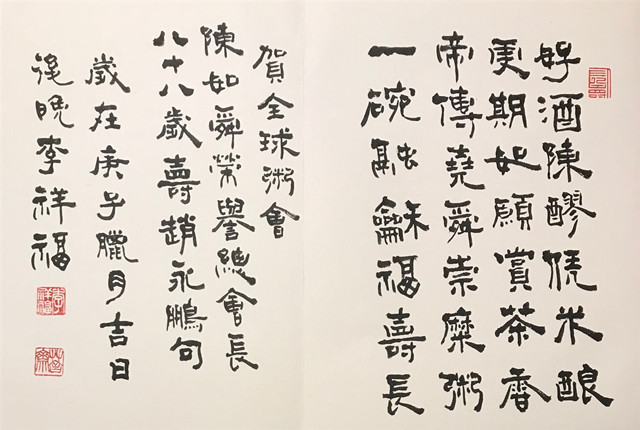 好酒陳醪米酿
更期如願賞茶香
帝傳堯舜崇糜粥
一碗融龢福壽長
賀全球粥會
陳如舜榮譽總會長
八十八歲壽趙永鵬句
歲在庚子臘月吉日
後晚李祥福